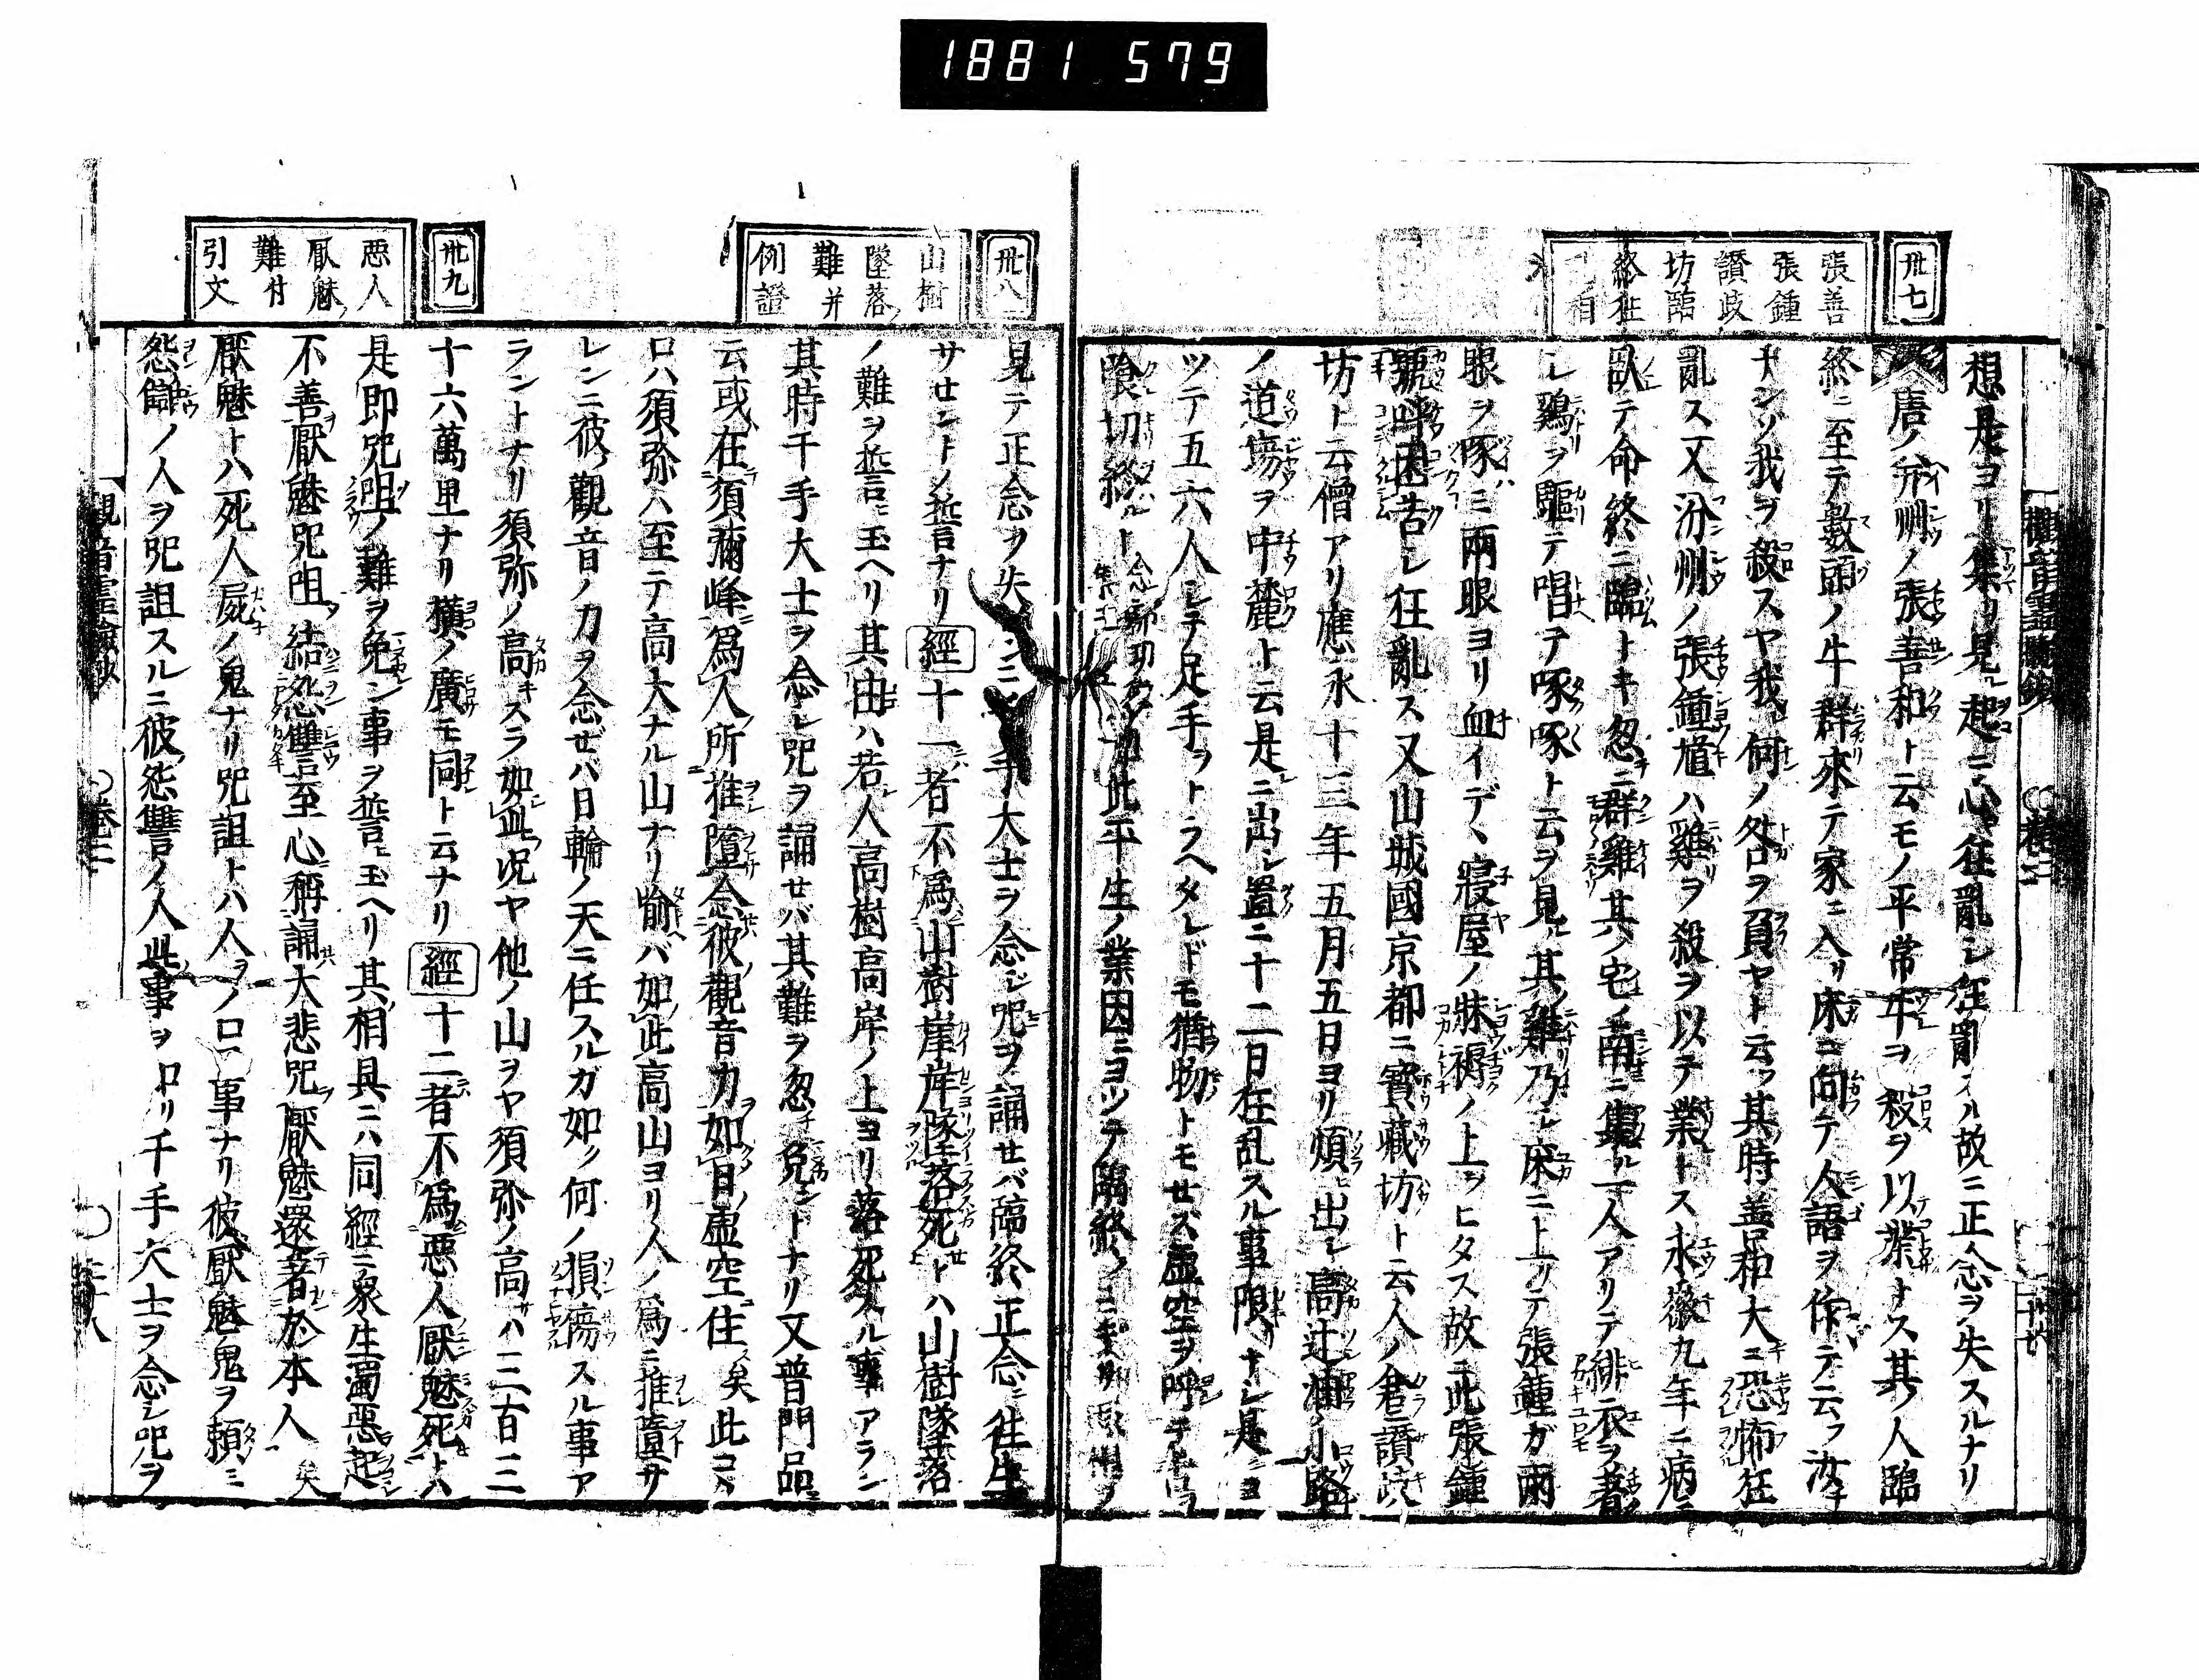 1881 579
卅七
張善
張鍾
讃岐
坊臨
終狂
相
想是ヨリ集リ見レ起ニ心狂亂シ狂亂スル故ニ正念ヲ失スルナリ
唐ノ并州ノ張善和ト云モノ平常牛ヲ殺ヲ以業トス其人臨
終ニ至テ數頭ノ牛群來テ家ニ入リ床ニ向テ人語ヲ作テ云ク汝
ナンソ我ヲ殺スヤ我何ノ咎ヲ負ヤト云フ其時善和大ニ恐怖狂
亂ス又汾州ノ張鍾馗ハ雞ヲ殺ヲ以テ業トス永徽九年ニ病
臥テ命終ニ臨トキ忽ニ群雞其ノ宅ノ南ニ集ル一人アリテ緋衣ヲ著
シ鷄ヲ驅テ唱テ啄啄ト云ヲ見ル其雞乃シ床ニ上リテ張鍾ガ兩
眼ヲ啄ミ兩眼ヨリ血イデヽ寢屋ノ牀褥ノ上ヲヒタス故ニ此張鍾
號呼困苦シ狂亂ス又山城國京都ニ寳藏坊ト云人ノ君讃岐
坊ト云僧アリ應永十三年五月五日ヨリ煩ヒ出シ高辻油ノ小路
ノ道塲ヲ中麓ト云是ニ出シ置ニ十二日狂乱スル事限ナシ是ニヨ
ツテ五六人シテ足手ヲトラヘタレドモ猶物トモセズ虚空ヲ呼テ
喰切終ルト此平生ノ業因ニヨツテ臨終ノ
卅八
山樹
墜落ノ
難并
例證
見テ正念ヲ失手大士ヲ念ジ咒ヲ誦セバ臨終正念ニ往生
サセントノ誓ナリ經十一者不爲山樹崖岸墜落死トハ山樹墜落
ノ難ヲ誓ヒ玉ヘリ其由ハ若人高樹高岸ノ上ヨリ落死スル事アラン
其時千手大士ヲ念ヒ咒ヲ誦セバ其難ヲ忽チ免ントナリ又普門品ニ
云或在須彌峰爲人所推墮念彼觀音力如日虚空住矣此コヽ
ロハ須弥ハ至テ高大ナル山ナリ喻バ如此高山ヨリ人ノ爲ニ推墮サ
レンニ彼觀音ノ力ヲ念ゼバ日輪ノ天ニ任スルガ如ク何ノ損傷スル事ア
ラントナリ須弥ノ高キスラ如此況ヤ他ノ山ヲヤ須弥ノ高サハ三百三
十六萬里ナリ横ノ廣モ同ト云ナリ經十二者不爲惡人厭魅死トハ
是即咒咀ノ難ヲ免ン事ヲ誓ヒ玉ヘリ其相具ニハ同經ニ衆生濁惡起
不善厭魅咒咀結怨讐至心稱誦大悲咒厭魅還著於本人矣
厭魅トハ死人屍ノ鬼ナリ咒詛トハ人ヲノロフ事ナリ彼厭魅鬼ヲ頼ミ
怨讎ノ人ヲ咒詛スルニ彼怨讐ノ人此事ヲ知リ千手大士ヲ念シ咒ヲ
卅九
惡人
厭魅ノ
難付
引文
觀音靈驗鈔